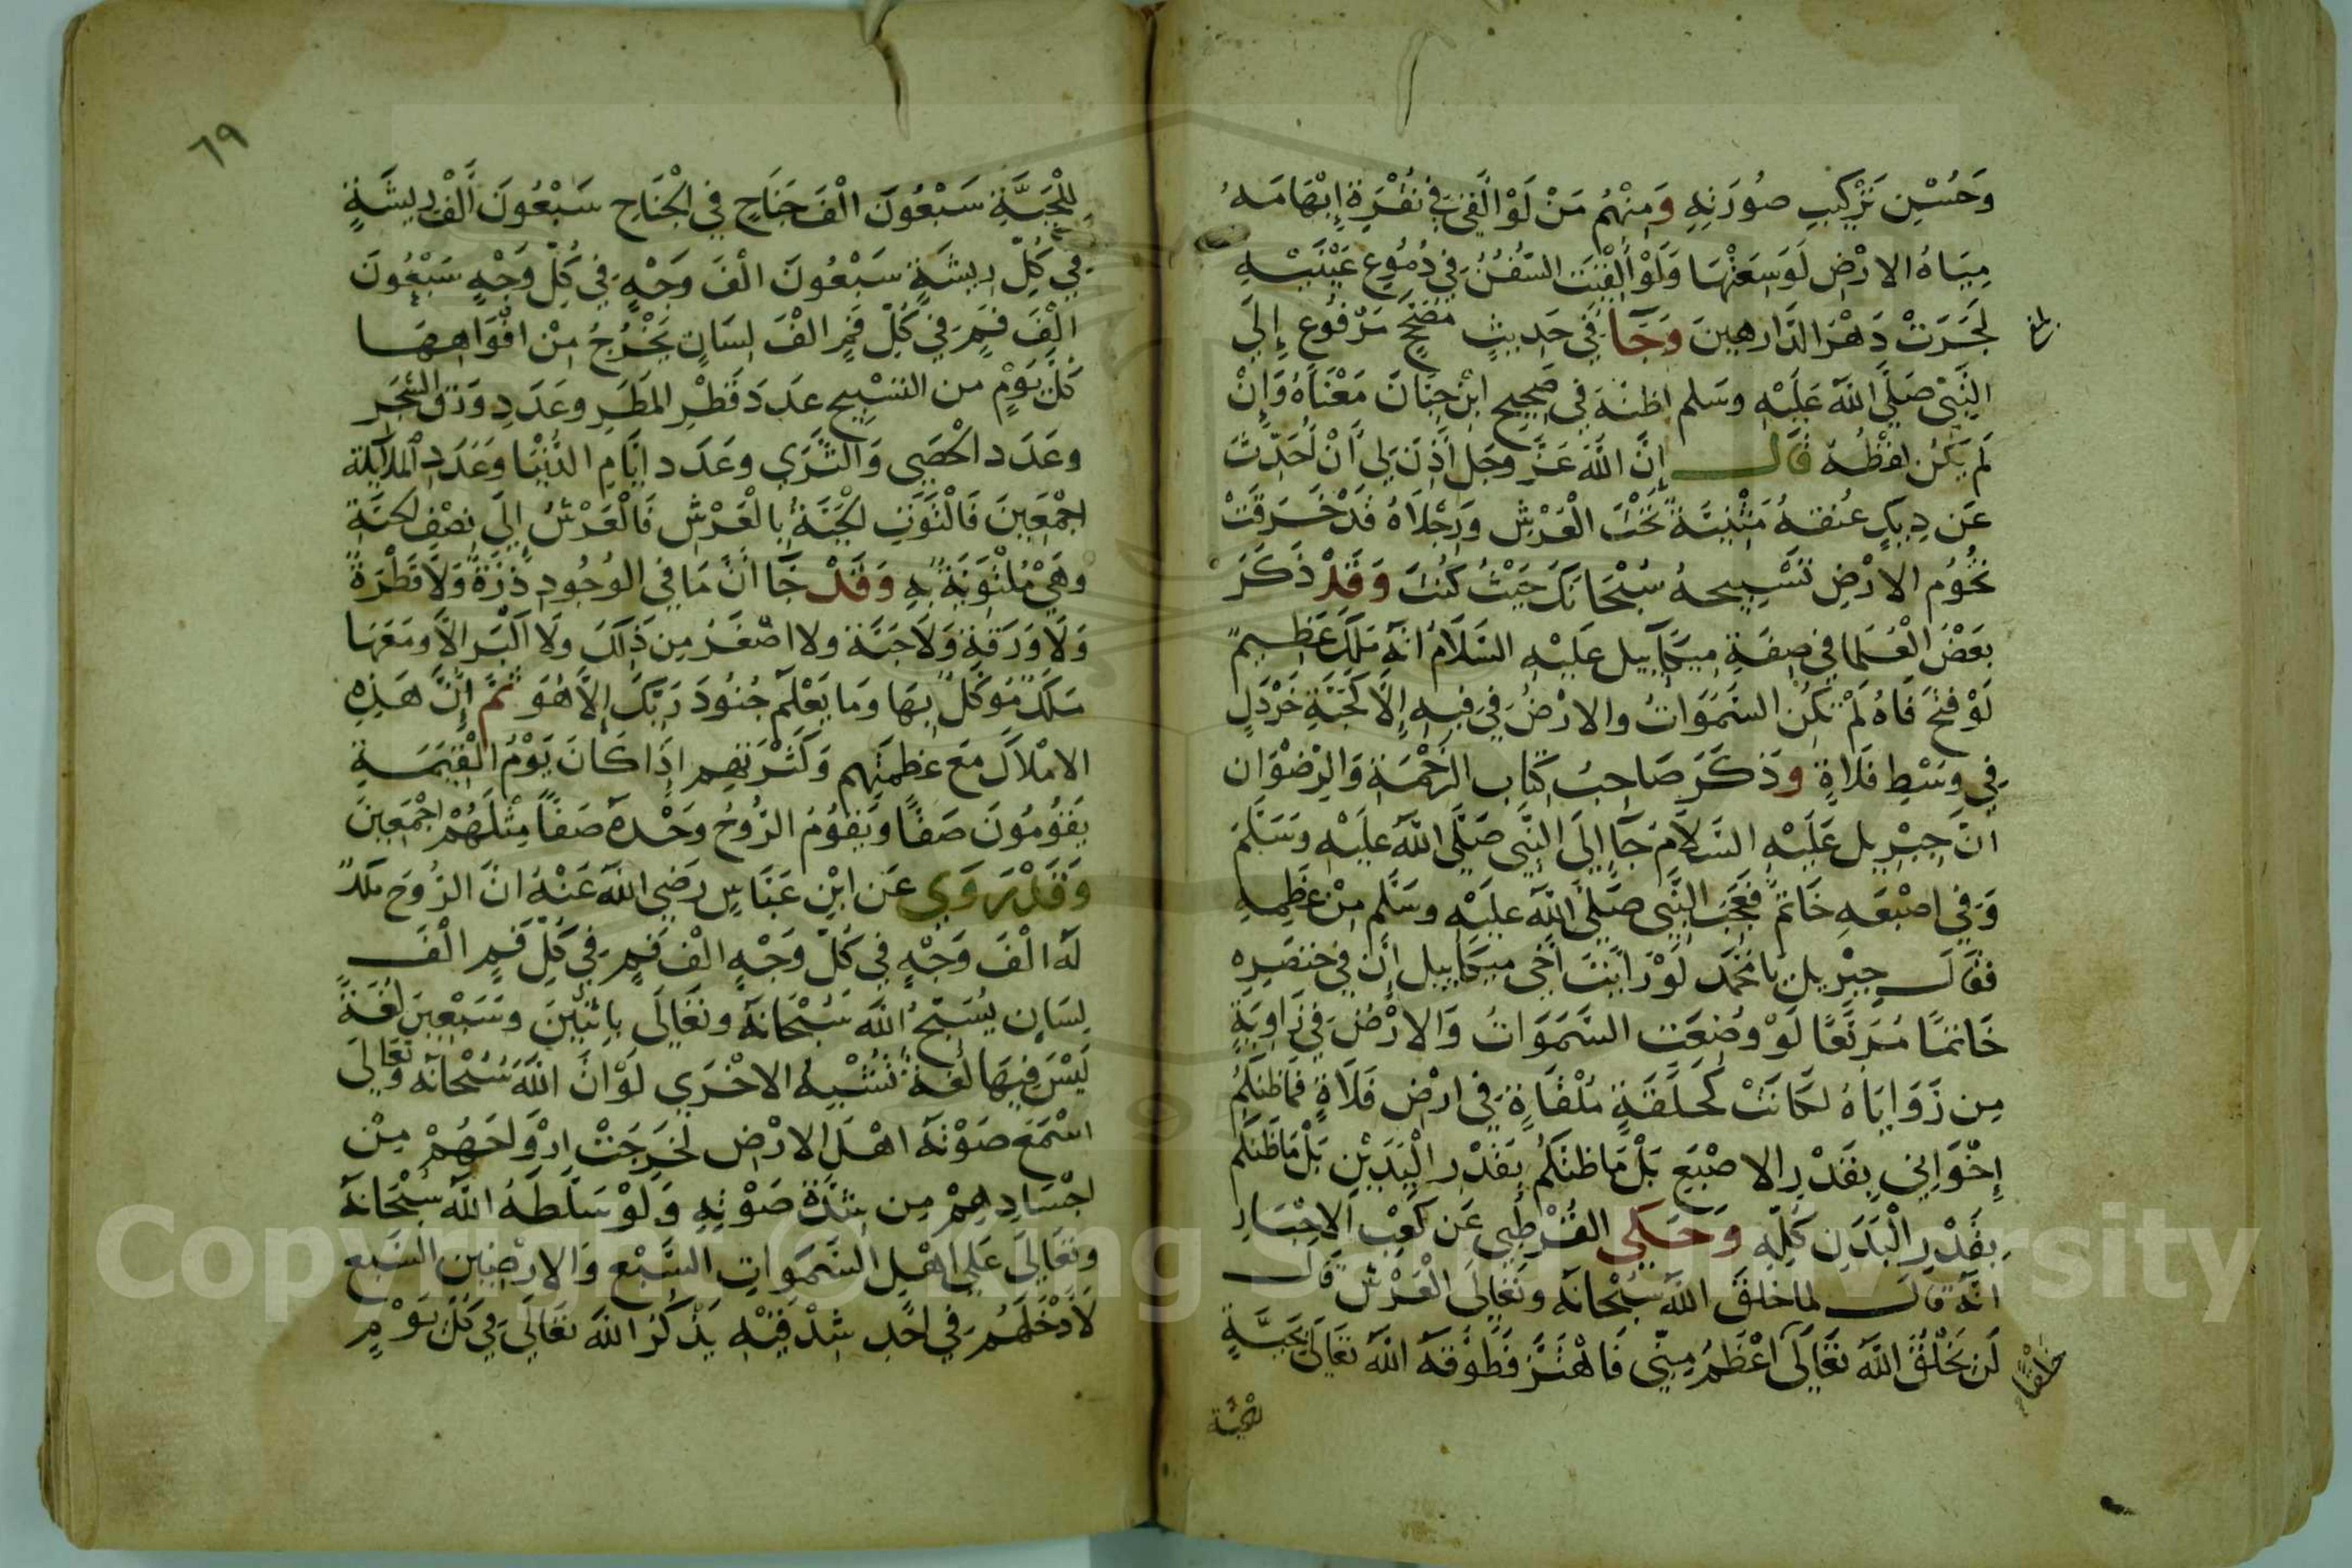 وَحُسْنِ تَرْكيبِ صُورَتِهِ وَمِنْهُم مَنْ لَوْ اُلْقِيَ في نُقْرَةِ إِبْهَامَهُ
مِيَاهُ الارْضِ لَوَسِعَتْهَا وَلَوْ أُلْقِيَت السُّفُنُ في دُمُوعِ عَيْنَيْهِ
لَجَرَتْ دَهْرَ الدَّاهِرِينَ وَجَآ في حَدِيثٍ مَرْفُوعِ إِلَى
النَّبِي صَلَّى اللَّه عَلَيْهِ وسَلم اظنه في صَحِيح ابْنِ حِبَانَ مَعْنَاهُ وَإِنْ
لَم يَكُن لفْظُهُ قَال إِنَّ اللَّهَ عَزَّ وجَل أَذِنَ لِي أَنْ أُحَدِّثَ
عَن دِيكٍ عُنقهُ مَثْنِيَّة تَحْتَ الْعَرْشِ وَرِجْلاَهُ قَدْ خَرَقَتْ
تخُوُم الارْضِ تَسْبِيحهُ سُبْحَانَكَ حَيْثُ كُنْتَ وَقَدْ ذَكَرَ
بَعْضُ الْعُلمَا في صِفَةِ مِيكَآييل عَلَيْهِ السَّلَامُ انَّه مَلَكٌ عَظِيمٌ
لَوْ فتحَ فَاهُ لَمْ تَكُنْ السَّمَوَاتُ والارْضُ في فِيهِ إِلَّا كَحَبَّةِ خَرْدَلٍ
في وسْطِ فلَاةٍ وذَكَرَ صَاحِبُ كِتَاب الرَحْمَةِ وَالرِضْوَان
انَّ جِبْرِيل عَلَيْهِ السَلاَّم جَآ إِلَى النَّبِي صَلَّى اللَّه عَليَهْ وَسَلَّمَ
وَفي اصْبعَهِ خَاتمٌ فَعَجِبَ النَّبِي صَلَّى اللَّه عَلَيْهِ وسَلَّم مِنْ عِظَمِهِ
فقَالَ جِبْرِيل يَا مُحَمَّد لَوْ رَايْتَ أَخِي مِيكَاييل إِن في خنصَرِهِ
خَاتمًا مُرَبَّعًا لَوْ وضِعَت السَّمَوَاتُ وَالارْضُ في زَاوِيَةٍ
مِن زَوَايَاهُ لكَانَتْ كَحَلَقَةٍ مُلْقَاةٍ في ارْضِ فَلَاةٍ فمَا ظنكمُ
إِخْوَانِي بِقَدْرِ الاصْبَع بَلْ مَا ظنكُمْ بِقَدْرِ الْيَدَيْنِ بَلْ مَا ظَنكُم
بِقَدْرِ الْبَدَنِ كُلِّهِ وَحَكَي القُرْطِبي عَن كَعْبِ الاحْبَارِ
انَّهُ قَالَ لما خَلقَ اللَّه سُبْحَانَهُ وتَعَالَى الْعَرْشَ قَال
لَن يَخْلُقَ اللَّه تعَالَى أَعْظَمُ مِنِّي فَاهْتَزَّ فَطَوَّقَهُ اللَّه تعَالَى بحَيَّةٍ
خلقًا
للحيَّة
٦٩
لِلْحَيَّةِ سَبْعُونَ الْفَ جَنَاحٍ في الْجَنَاحِ سَبْعُونَ أَلْفَ رِيشَةٍ
في كلِّ رِيشَةٍ سَبْعُونَ الْفَ وَجْهٍ في كُلّ وَجْهٍ سَبْعُونَ
الْفَ فَمٍ في كُلّ فَمٍ الْفَ لِسَانٍ يَخْرُجُ مِنْ افْوَاهِهَا
كلَّ يَوْمٍ من التسْبِيح عدَدَ قَطْرِ المَطَرِ وعَدَدِ وَرَقِ الشَّجَرِ
وعَدَد الْحَصَى وَالثَّرَى وعَدَد ايَّامِ الدُّنْيَا وعَدَد الملَآئِكَة
اجْمَعِينَ فَالْتَوَتِ الحيَّةُ بِالْعَرْشِ فَالْعَرْشُ إِلَى نِصْفِ الحيَّةِ
وهِيَ مُلْتَوِيَةٌ بِهِ وَقَدْ جَآ انَّ مَا في الوُجُودِ ذَرّةٌ وَلَا قَطْرَةٌ
وَلَا وَرَقَةٌ وَلَا حَبَّةٌ ولا اصْغَرَ مِن ذَلِكَ ولَا اكْبَر الَّا ومَعَهَا
مَلَكٌ مُوَكَّلٌ بِهَا وَمَا يَعْلَمُ جُنُودَ رَبَّكَ إِلَّا هُوَ ثُمَّ إِنَّ هَذِهِ
الامْلاَكَ مَعَ عِظَمِهِم وَكَثْرَتهِم إِذَا كَانَ يَوْمُ الْقِيَمَةِ
يَقُومُونَ صَفًّا وَيَقُومُ الرُّوحُ وَحْدَهُ صَفًّا مِثْلَهُمْ اجْمَعِينَ
وَقَدْ رَوَى عَن ابْنِ عَبَّاسٍ رَضِى اللَّهَ عَنْهُ انَّ الرُّوحَ مَلَكٌ
لَه الْفَ وَجْهٍ في كُلّ وَجْهٍ الْفَ فَمٍ في كُلِّ فَمٍ الْفَ
لِسَانٍ يُسَبّحُ اللَّه سُبْحَانَه وتَعَالَى بِاثْنَيْنِ وسَبْعِينَ لُغَةً
لَيْسَ فِيهَا لُغَةٌ تُشْبِهُ الاخْرَى لَوْ انَّ اللَّهَ سُبْحَانَه وتَعَالَى
اسْمَعَ صَوْتَهُ اهْلَ الارْضِ لَخَرَجَتْ ارْوَاحَهُمْ مِنْ
اجْسَادِهِمْ مِن شدَّةِ صَوْتِهِ وَلَوْ سَلَّطَهُ اللَّه سُبْحَانَهُ
وتعَالَى عَلَى اهْلِ السَّمَوَاتِ السَّبْعِ وَالارْضِينَ السَّبع
لَادْخَلَهُم في احَدِ شِدْقَيْهِ يَذْكُرُ اللَّهَ تعَالَى في كلّ يَوْمٍ
Copyright © King Saud University